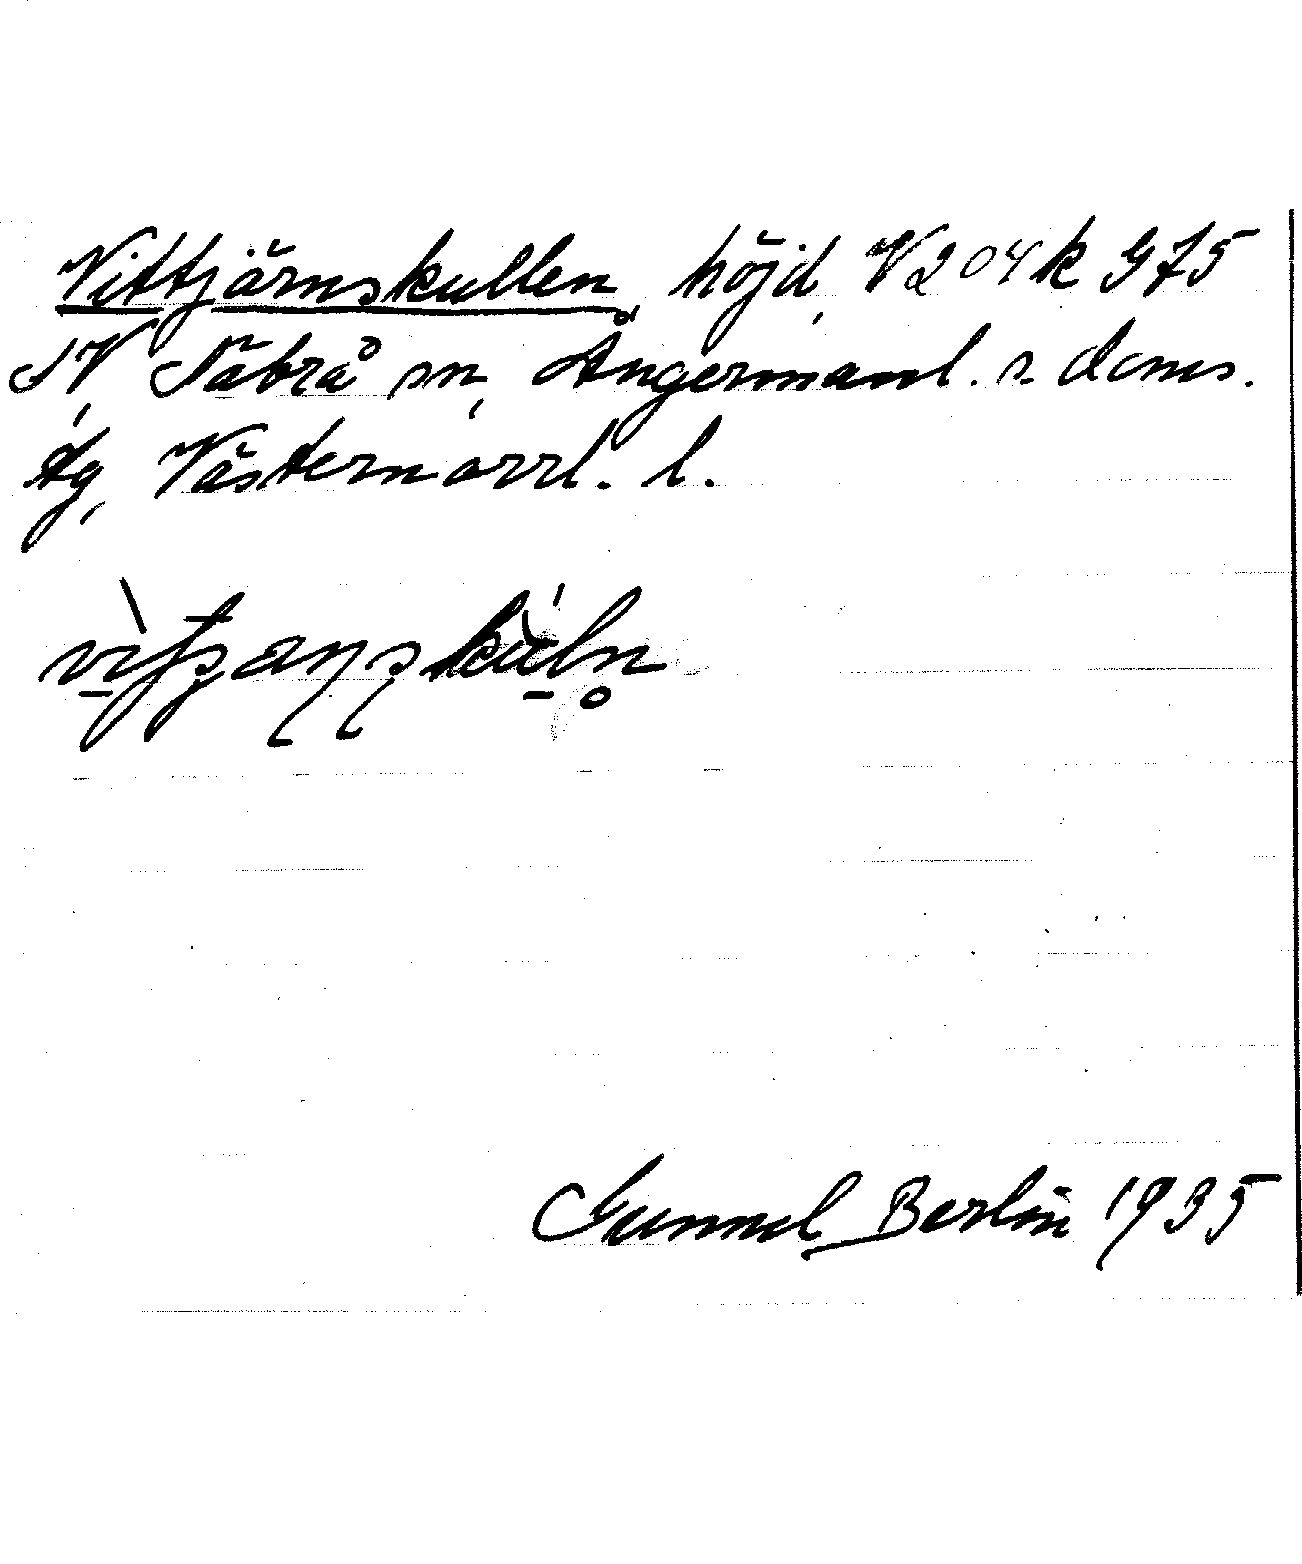 Vittjärnskullen, höjd, V204k G75
SV, Säbrå sn, Ångermanl. s doms.
tg, Västernorrl. l.
Gunnel Berlin 1935